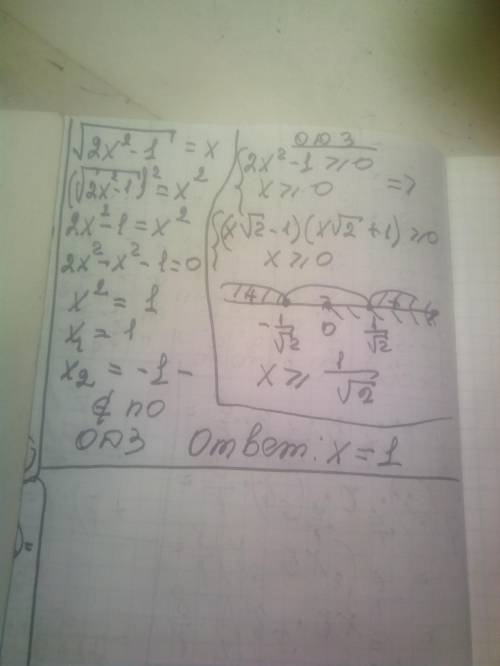 √(2x²-1) = x
(√(2x²-1))² = x²
2x²-1 = x²
2x²-x²-1=0
x² = 1
x₁ = 1
x₂ = -1 -
∉ по
ОДЗ
ОДЗ
{ 2x²-1 ⩾ 0
x ⩾ 0 =>
{ (x√2-1)(x√2+1) ⩾ 0
x ⩾ 0
+ - +
-1/√2 0 1/√2
x ⩾ 1/√2
Ответ: x = 1